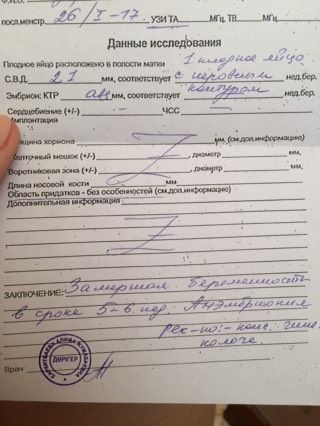 посл.менстр. 26/I-17. УЗИ ТА МГц, ТВ МГц.
Данные исследования
Плодное яйцо расположено в полости матки 1 плодное яйцо
С.В.Д 21 мм, соответствует с неровным нед.бер.
Эмбрион: КТР мм, соответствует контуром нед.бер.
Сердцебиение (+/-) - ЧСС -
Имплантация
щина хориона мм, (см.доп.информацию)
елточный мешок (+/-) , диаметр мм,
Воротниковая зона (+/-) , диаметр мм,
Длина носовой кости мм
Область придатков - без особенностей (см.доп.информацию)
Дополнительная информация
ЗАКЛЮЧЕНИЕ: Замершая беременность
в сроке 5-6 нед. Анэмбриония
рек-но:- конс. гине-
колога
Врач
ДӘРІГЕР